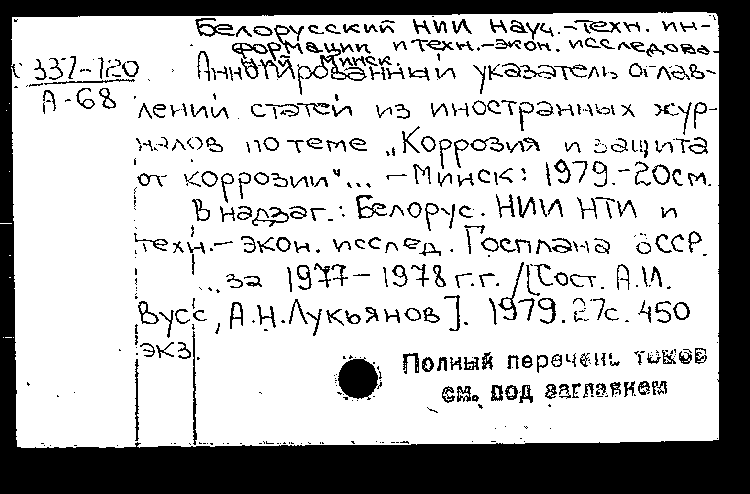 Белорусский НИИ науч.-техн. ин-
формации и техн.-экон. исследова-
ний. Минск.
337-120
А-68
Аннотированный указатель оглав-
лений статей из иностранных жур-
налов по теме „Коррозия и защита
от коррозии"... - Минск: 1979.-20см.
В надзаг.: Белорус. НИИ НТИ и
техн.- экон. исслед. Госплана БССР.
... за 1977-1978 г.г. /[Сост. А.И.
Вусс, А.Н. Лукьянов]. 1979. 27с. 450
экз.
Полный перечень томов
см. под заглавием